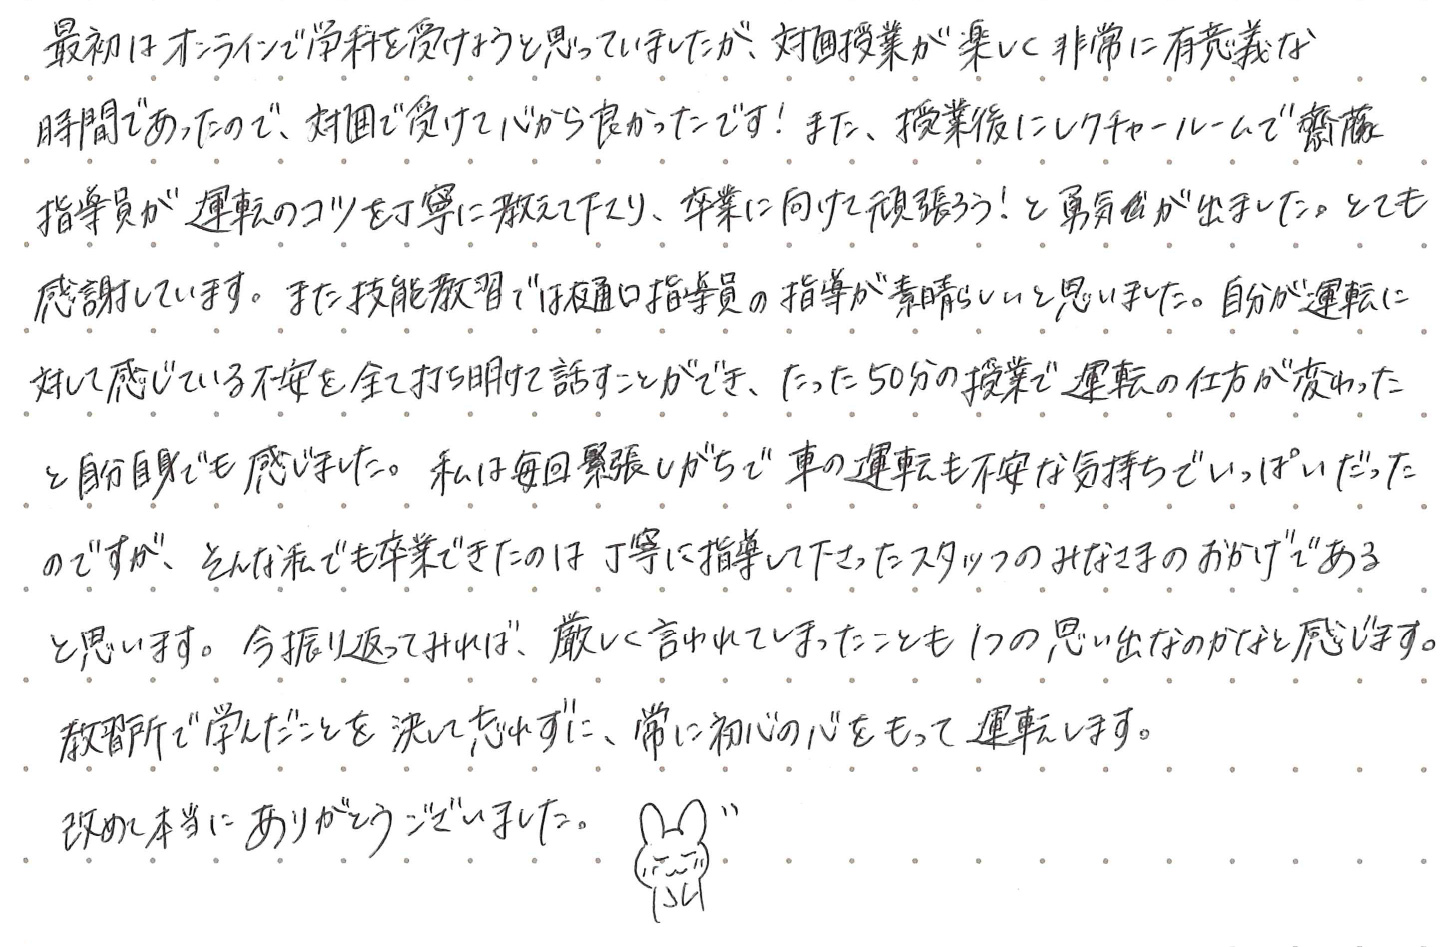 最初はオンラインで学科を受けようと思っていましたが、対面授業が楽しく非常に有意義な
時間であったので、対面で受けて心から良かったです！また、授業後にレクチャールームで齋藤
指導員が運転のコツを丁寧に教えて下さり、卒業に向けて頑張ろう！と勇気が出ました。とても
感謝しています。また技能教習では樋口指導員の指導が素晴らしいと思いました。自分が運転に
対して感じている不安を全て打ち明けて話すことができ、たった50分の授業で運転の仕方が変わった
と自分自身でも感じました。私は毎回緊張しがちで車の運転も不安な気持ちでいっぱいだった
のですが、そんな私でも卒業できたのは丁寧に指導して下さったスタッフのみなさまのおかげである
と思います。今振り返ってみれば、厳しく言われてしまったことも1つの思い出なのかなと感じます。
教習所で学んだことを決して忘れずに、常に初心の心をもって運転します。
改めて本当にありがとうございました。